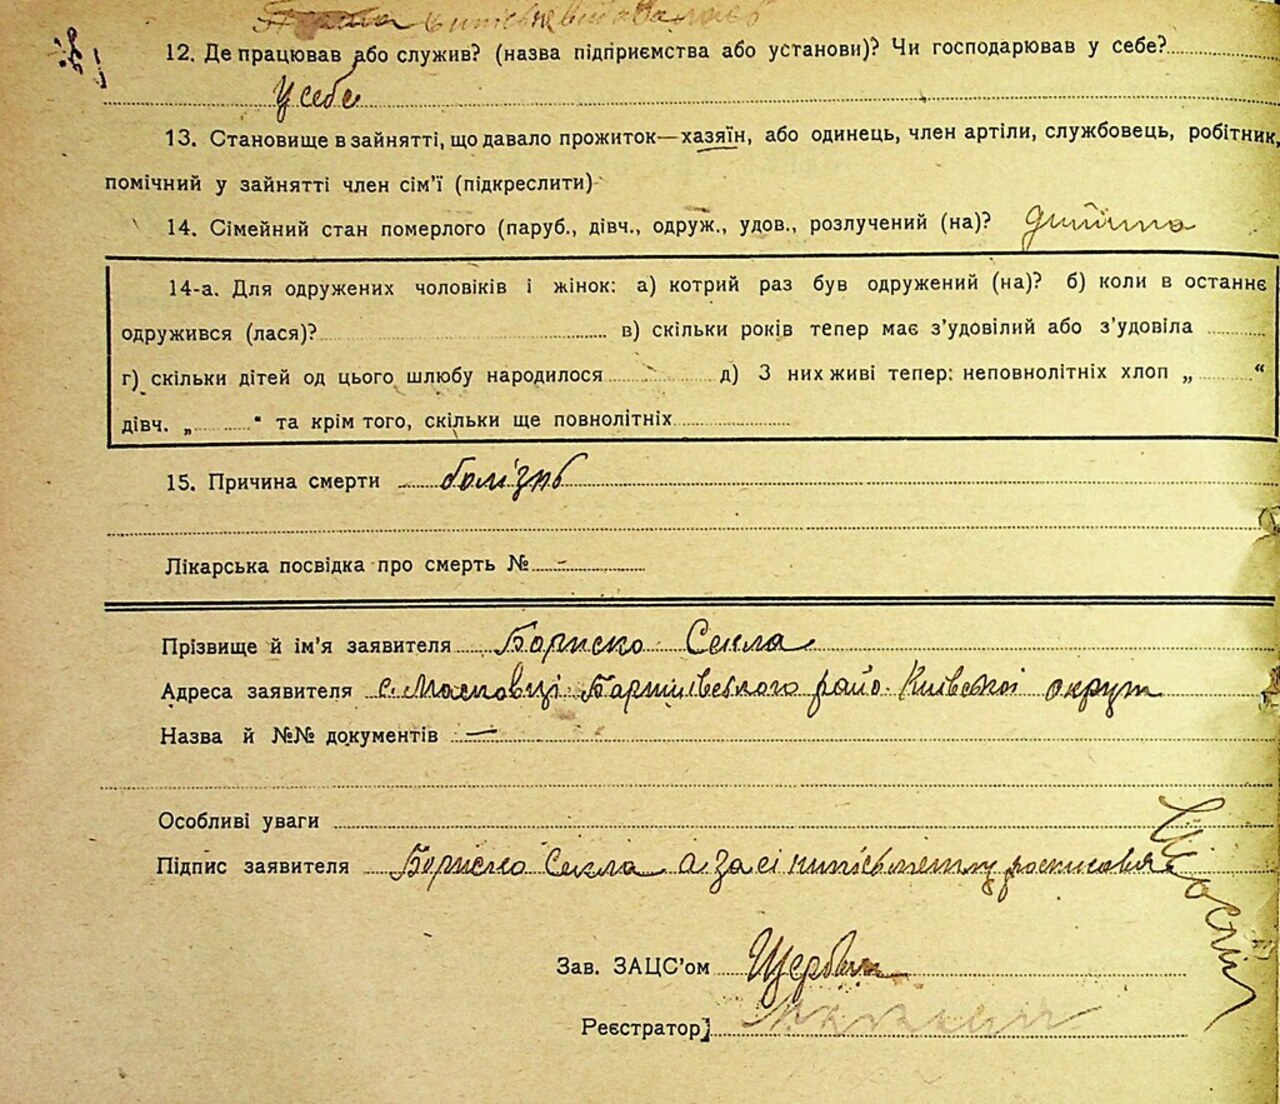 12. Де працював або служив? (назва підприємства або установи)? Чи господарював у себе?
У себе
13. Становище в зайнятті, що давало прожиток—хазяїн, або одинець, член артіли, службовець, робітник,
помічний у зайнятті член сім'ї (підкреслити)
14. Сімейний стан померлого (паруб., дівч., одруж., удов., розлучений (на)?
14-а. Для одружених чоловіків і жінок: а) котрий раз був одружений (на)? б) коли в останнє
одружився (лася)? в) скільки років тепер має з'удовілий або з'удовіла
г) скільки дітей од цього шлюбу народилося д) З них живі тепер: неповнолітніх хлоп „ “
дівч. „ “ та крім того, скільки ще повнолітніх
15. Причина смерти болізнь
Лікарська посвідка про смерть № -
Прізвище й ім'я заявителя Бориско Секла
Адреса заявителя с. Масковці Баришівського райо. Київської округи
Назва й №№ документів —
Особливі уваги
Підпис заявителя Бориско Секла а за єї
Зав. ЗАЦС'ом Щербина
Реєстратор